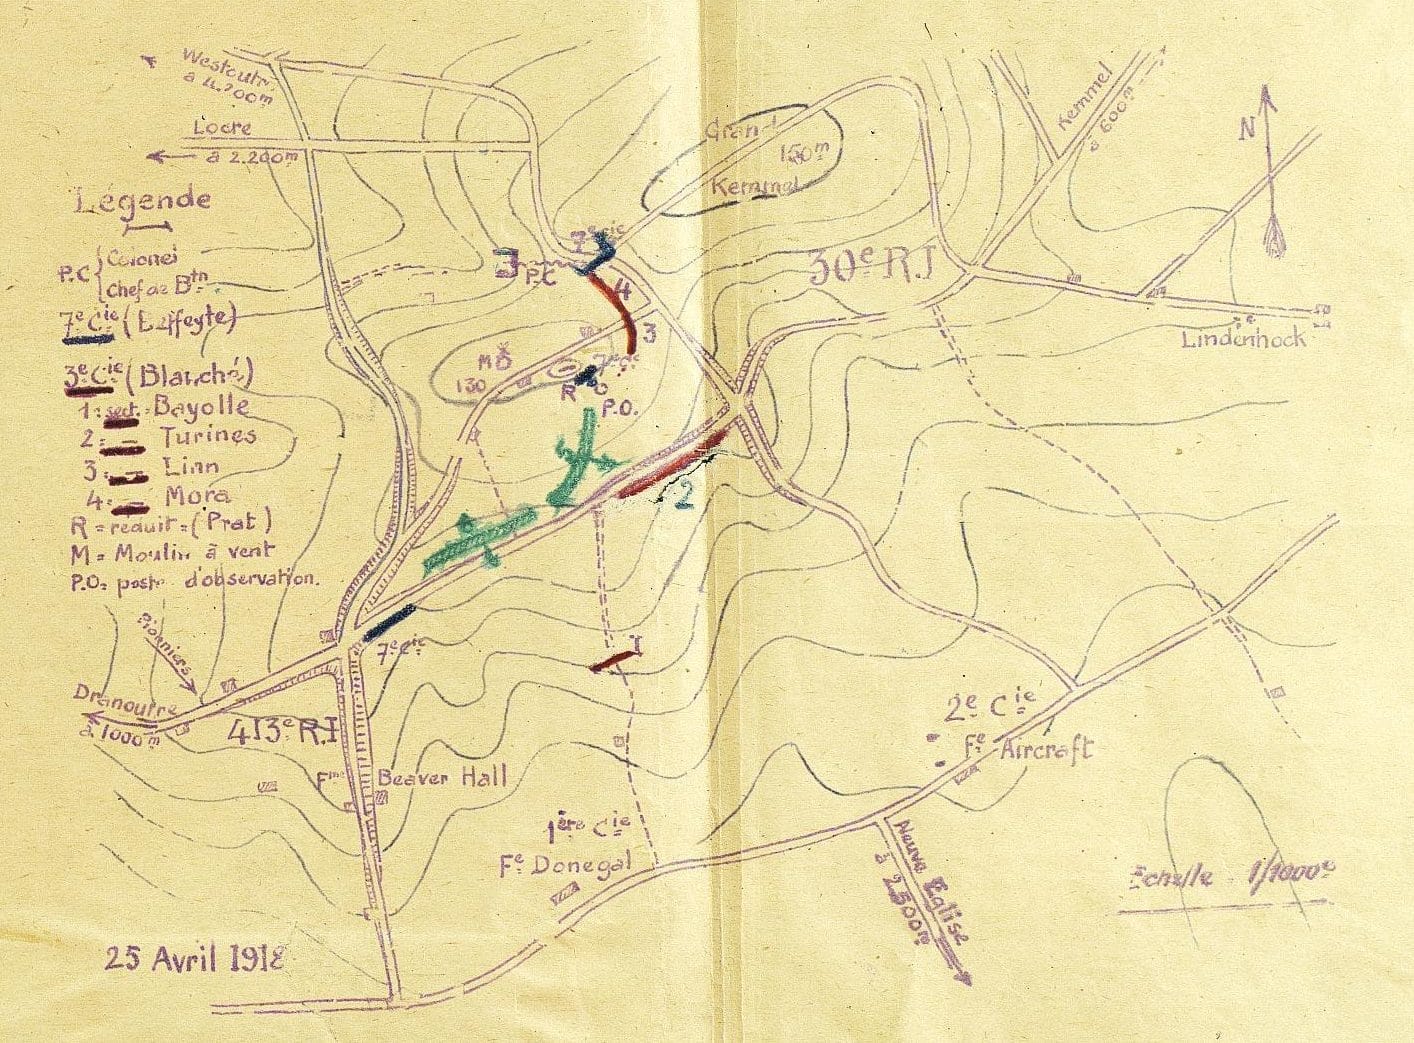 Westoutre
à 4.200m
Locre
à 2.200m
Légende
P.C { Colonel
Chef de Btn
7e Cie (
3e Cie (Blanché)
1 = sect. = Bayolle
2 = Turines
3 = Linn
4 = Mora
R = réduit = (Prat)
M = Moulin à vent
P.O = poste d'observation.
Grand
Kemmel
150m
Kemmel
à 600m
N
7e Cie
P.C
4
3
30e R.I
Lindenhock
Mt
130
7e Cie
R
P.O.
2
7e Cie
1
Pionniers
Dranoutre
à 1000m
413e R.I
Fme Beaver Hall
2e Cie
Fe Aircraft
1ère Cie
Fe Donegal
Neuve Eglise
à 2500m
Echelle 1/1000e
25 Avril 1918